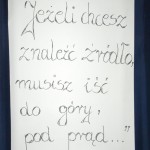 "Jeżeli chcesz
znaleźć źródło,
musisz iść
do góry,
pod prąd..."